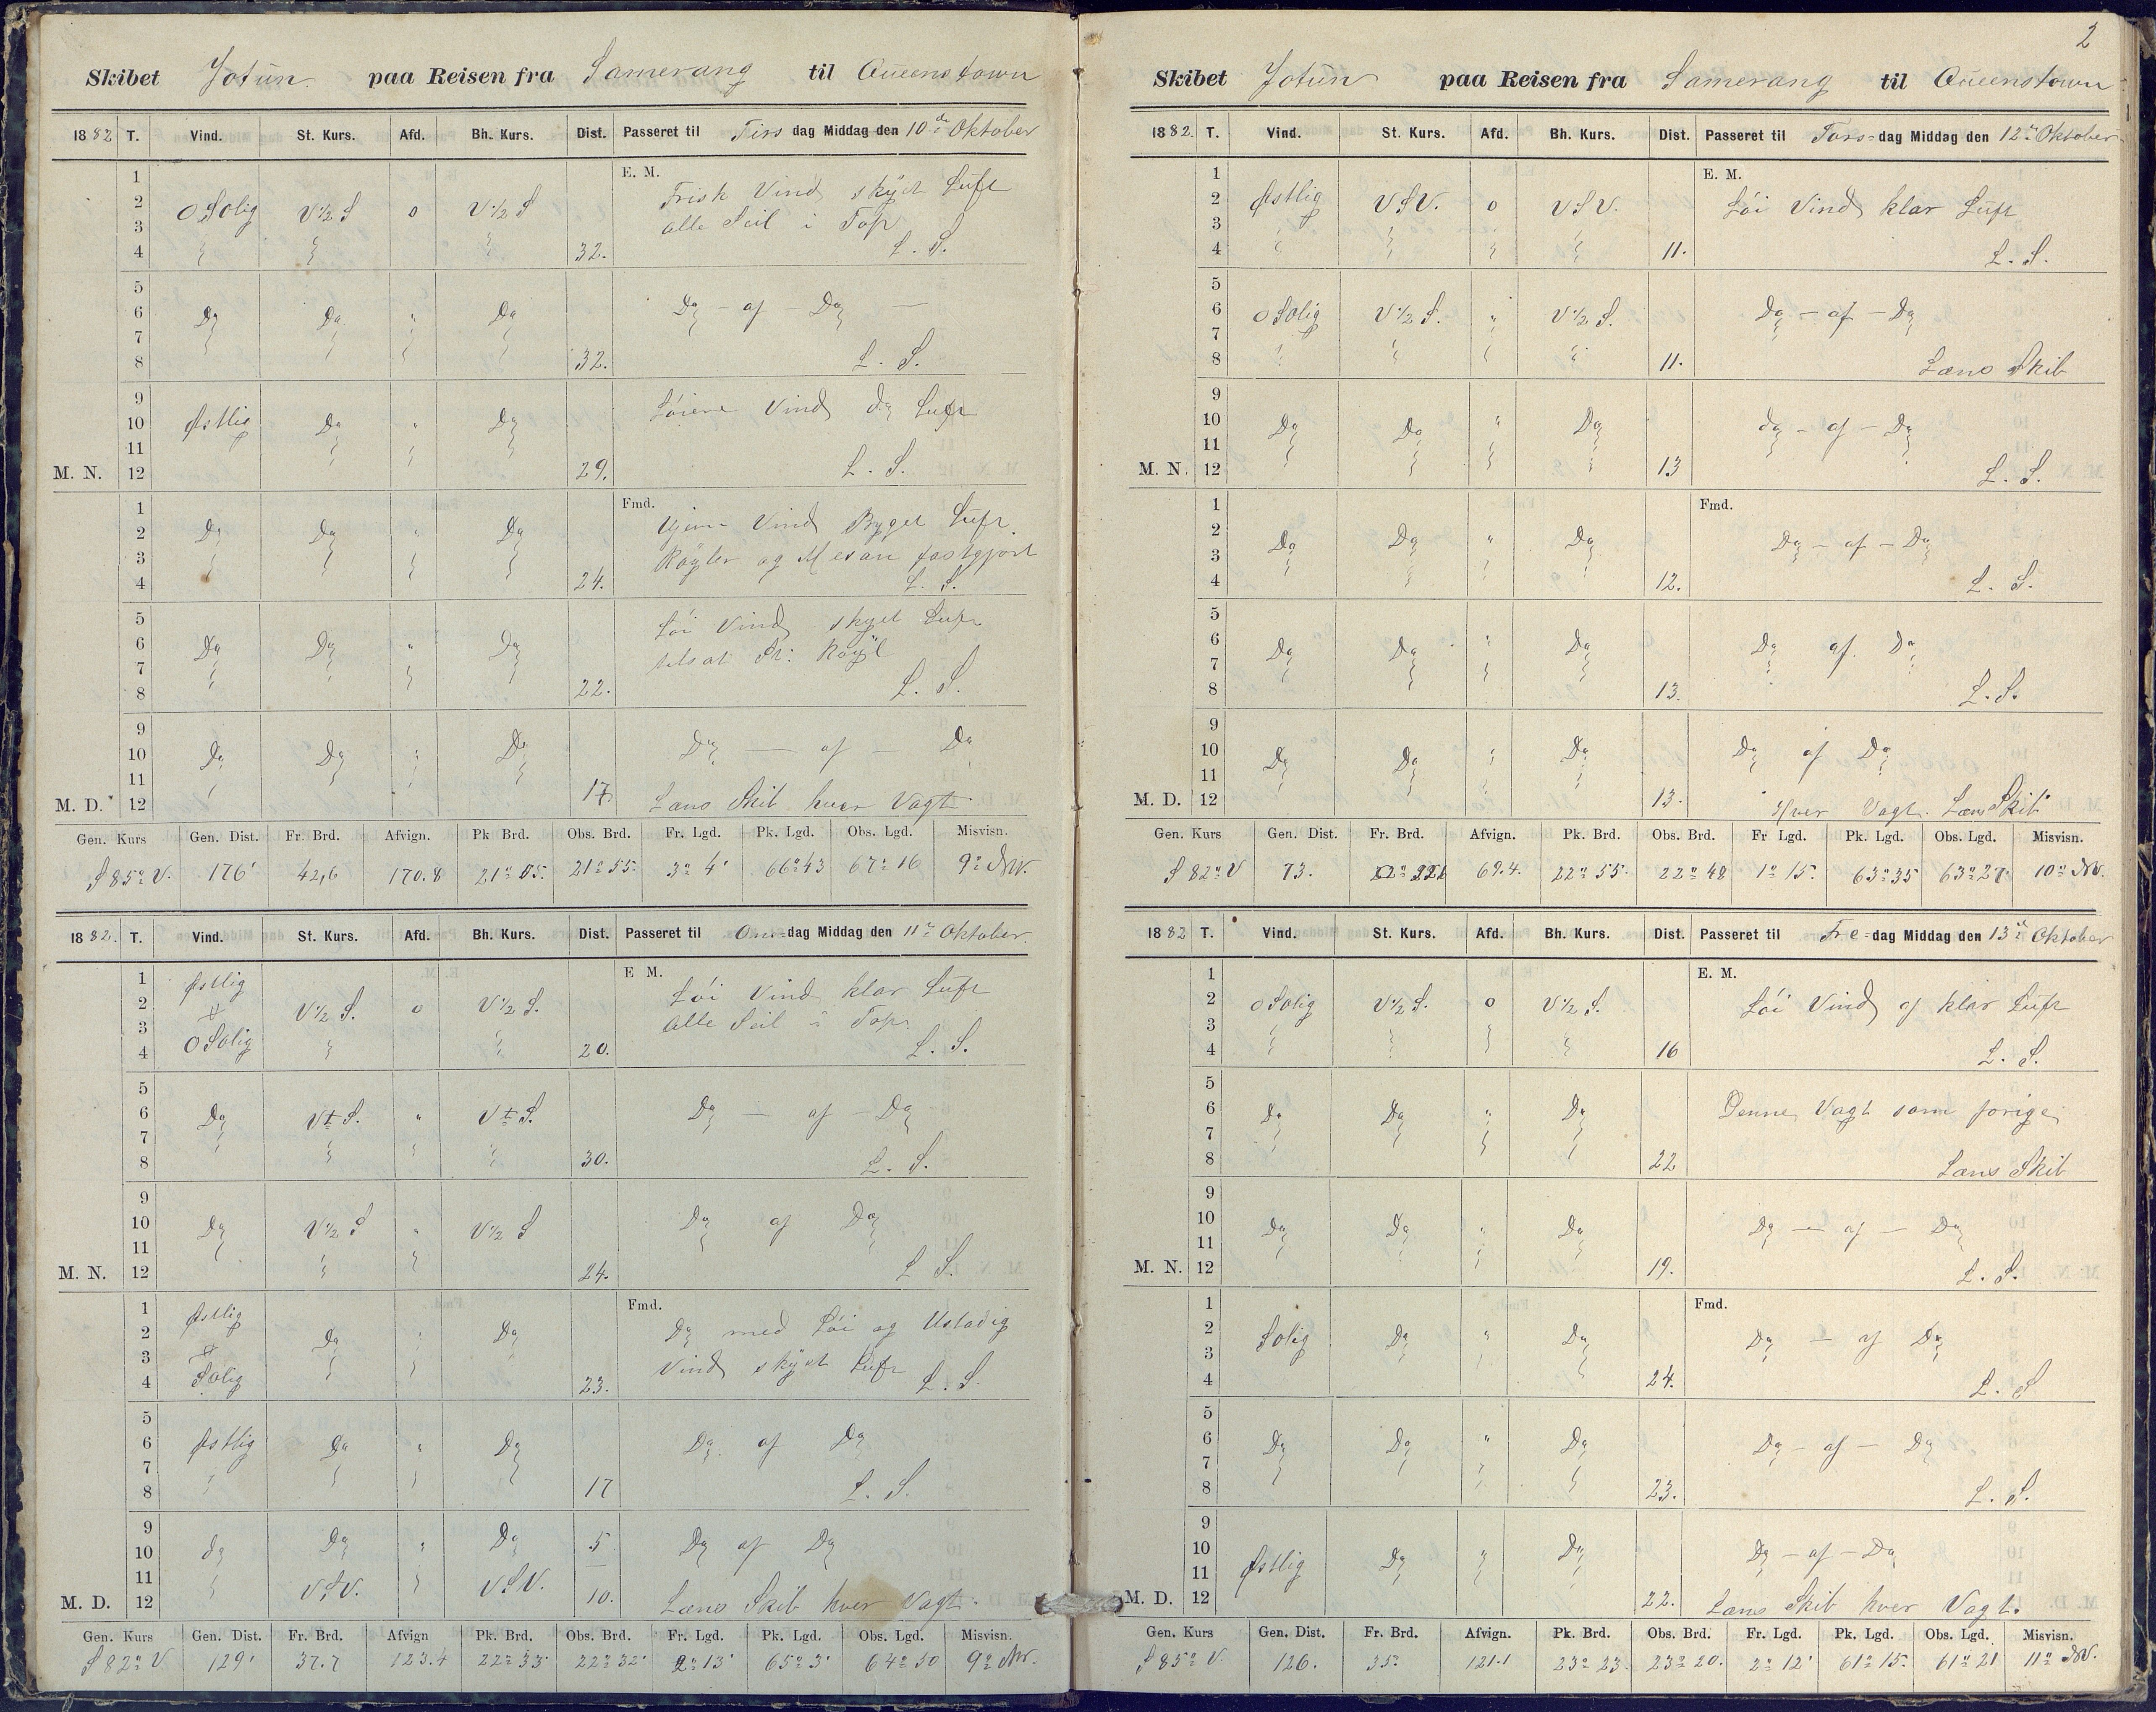 Skibet Jotün paa Reisen fra Samerang til Queenstown
1882 T. Vind. St. Kurs. Afd. Bh. Kurs. Dist. Passeret til Tirsdag Middag den 10de Oktober
1 E. M.
2 OSOlig V½S o V½S Frisk Vind skÿet Luft
3 alle Seil i Top
4 32. L. S.
5
6 Do Do " Do Do - af - Do
7
8 32. L. S.
9
10 Østlig Do " Do Löiere Vind do Luft
11
M. N. 12 29. L. S.
1 Fmd.
2 Do Do " Do Ujevn Vind Byget Luft.
3 Röÿler og Mesan fastgjort
4 24. L. S.
5 Löi Vind skyet Luft
6 Do Do " Do tilsat St: Röÿl
7
8 22. L. S.
9
10 Do Do " Do Do - af - Do
11
M. D. 12 17. Læns Skib hver Vagt.
Gen. Kurs Gen. Dist. Fr. Brd. Afvign. Pk Brd. Obs. Brd. Fr. Lgd. Pk. Lgd. Obs. Lgd. Misvisn.
S 85° V. 176' 42,6 170.8 21° 05. 21° 55. 3° 4' 66° 43 67° 16 9° NV.
1882. T. Vind. St. Kurs. Afd. Bh. Kurs. Dist. Passeret til Ons=dag Middag den 11te Oktober.
1 Østlig E M.
2 V½S. o V½S. Löi Vind klar Luft
3 OSOlig Alle Seil i Top.
4 20. L. S.
5
6 Do V t S. " V t S. Do - af - Do
7
8 30. L. S.
9
10 Do V½S " V½S Do af Do
11
M. N. 12 24. L S.
1 Østlig Fmd.
2 Do " Do Do med Löi og Ustadig
3 Solig Vind skÿet Luft
4 23. L. S.
5
6 Østlig Do " Do Do. af Do
7
8 17 L. S.
9
10 do Do " Do 5 Do af Do
11 VSV. VSV.
M. D. 12 10. Læns Skib hver Vagt.
Gen. Kurs Gen. Dist. Fr. Brd. Afvign Pk. Brd. Obs. Brd. Fr. Lgd. Pk. Lgd. Obs. Lgd. Misvisn.
S 82° V 129' 37.7 123.4 22° 33' 22° 32' 2° 13' 65° 3' 64° 50 9° NV.
2
Skibet Jotün paa Reisen fra Samerang til Queenstown
1882. T. Vind. St. Kurs. Afd. Bh. Kurs. Dist. Passeret til Tors=dag Middag den 12te Oktober
1 E. M.
2 Østlig VSV. o VSV. Löi Vind klar Luft
3
4 11. L. S.
5
6 OSOlig V½S. " V½S. Do - af - Do
7
8 11. Læns Skib
9
10 Do Do " Do do - af - Do
11
M. N. 12 13 L. S.
1 Fmd.
2 Do Do " Do Do - af - Do
3
4 12. L. S.
5
6 Do Do " Do Do af. Do
7
8 13. L. S.
9
10 Do Do " Do Do af Do
11
M. D. 12 13. Hver Vagt. Læns Skib
Gen. Kurs Gen. Dist. Fr. Brd. Afvign. Pk. Brd. Obs. Brd. Fr Lgd. Pk. Lgd. Obs. Lgd. Misvisn.
S 82° V 73. 69.4. 22° 55. 22° 48 1° 15. 63° 35 63° 27. 10° NV.
1882 T. Vind. St. Kurs. Afd. Bh. Kurs. Dist. Passeret til Fre=dag Middag den 13de Oktober
1 E. M.
2 OSOlig V½S. o V½S. Löi Vind og klar Luft
3
4 16 L. S.
5
6 Do Do " Do Denne Vagt som forige
7
8 22 Læns Skib
9
10 Do Do " Do Do - af - Do
11
M. N. 12 19. L. S.
1 Fmd.
2 Solig Do " Do Do - af Do
3
4 24. L. S
5
6 Do Do " Do Do - af - Do
7
8 23. L. S.
9
10 Østlig Do " Do Do - af - Do
11
M. D. 12 22. Læns Skib hver Vagt.
Gen. Kurs Gen. Dist. Fr. Brd. Afvign. Pk. Brd. Obs. Brd. Fr. Lgd. Pk. Lgd. Obs. Lgd. Misvisn.
S 85° V. 126. 35' 121.1 23° 23. 23° 20. 2° 12' 61° 15. 61° 21 11° NV.